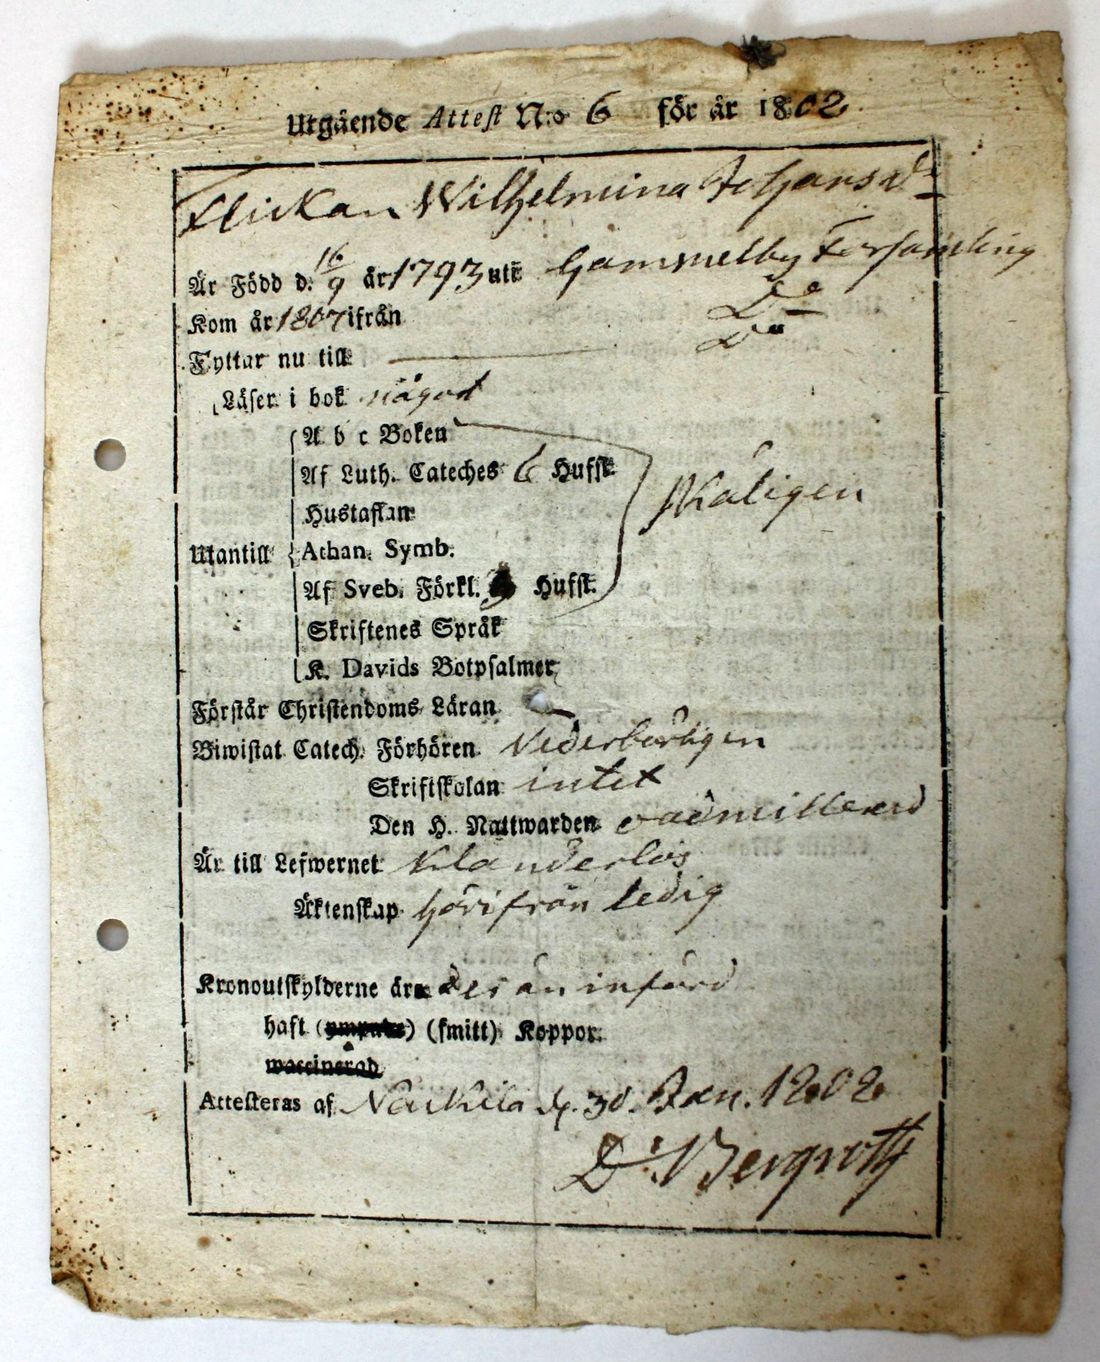 Utgående Attest N:o 6 för år 1802
Flickan Wilhelmina Johansd:r
Är Född d. 16/9 år 1793 uti Gammelby Församling
Kom år 1807 ifrån D:o
Fyttar nu till D:o
Läser i bok något
A b c Boken
Af Luth. Cateches 6 Hufst.
Hustaflan
Utantill Athan. Symb. skäligen
Af Sveb. Förkl. Hufst.
Skriftenes Språk
K. Davids Botpsalmer
Förstår Christendoms Läran
Biwistat Catech. Förhören Vederbörligen
Skriftskolan intet
Den H. Nattwarden oadmitterad
Är till Lefwernet Klanderlös
Äktenskap härifrån ledig
Kronoutskylderne äro ej än införd
haft (ympade) (smitt) Koppor.
waccinerad
Attesteras af d. 30. Jan. 1802.
D. Bergroth